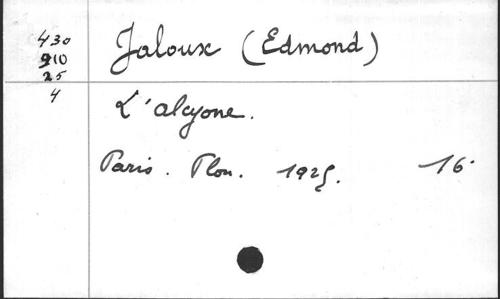 430
910
25
4
Jaloux (Edmond)
L'alcyone.
Paris. Plon. 1925. 16°